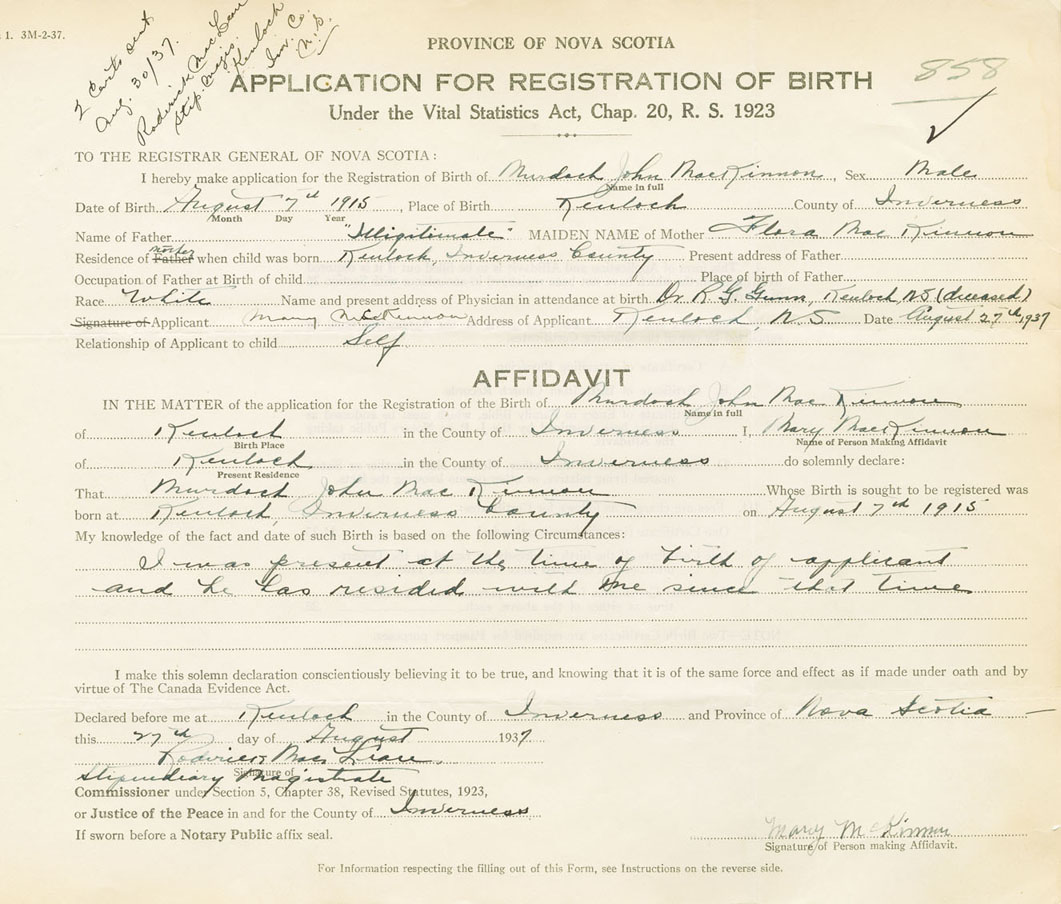 1. 3M-2-37.
2 Certs sent
Aug. 30/37.
Roderick MacLean
Stip. Magis.
Kenloch
Inv. Co.
N.S.
PROVINCE OF NOVA SCOTIA
858
APPLICATION FOR REGISTRATION OF BIRTH
Under the Vital Statistics Act, Chap. 20, R. S. 1923
TO THE REGISTRAR GENERAL OF NOVA SCOTIA:
I hereby make application for the Registration of Birth of Murdoch John MacKinnon, Sex Male
Name in full
Date of Birth August 7th 1915, Place of Birth Kenloch County of Inverness
Month Day Year
Name of Father "Illigitimate" MAIDEN NAME of Mother Flora Mac Kinnon
Residence of Father Mother when child was born Kenloch, Inverness County Present address of Father
Occupation of Father at Birth of child Place of birth of Father
Race White Name and present address of Physician in attendance at birth Dr. R. G. Gunn, Kenloch, NS (deceased)
Signature of Applicant Mary McKinnon Address of Applicant Kenloch, N.S. Date August 27th 1937
Relationship of Applicant to child Self
AFFIDAVIT
IN THE MATTER of the application for the Registration of the Birth of Murdoch John Mac Kinnon
Name in full
of Kenloch in the County of Inverness I, Mary MacKinnon
Birth Place Name of Person Making Affidavit
of Kenloch in the County of Inverness do solemnly declare:
Present Residence
That Murdoch John Mac Kinnon Whose Birth is sought to be registered was
born at Kenloch, Inverness County on August 7th 1915
My knowledge of the fact and date of such Birth is based on the following Circumstances:
I was present at the time of birth of applicant
and he has resided with me since that time
I make this solemn declaration conscientiously believing it to be true, and knowing that it is of the same force and effect as if made under oath and by
virtue of The Canada Evidence Act.
Declared before me at Kenloch in the County of Inverness and Province of Nova Scotia
this 27th day of August 1937
Roderick Mac Lean
Signature of
Stipendiary Magistrate
Commissioner under Section 5, Chapter 38, Revised Statutes, 1923,
or Justice of the Peace in and for the County of Inverness
If sworn before a Notary Public affix seal.
Mary McKinnon
Signature of Person making Affidavit.
For Information respecting the filling out of this Form, see Instructions on the reverse side.